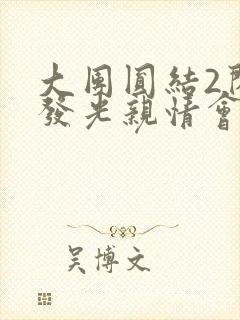 大團圓結2
發光親情會
吳博文